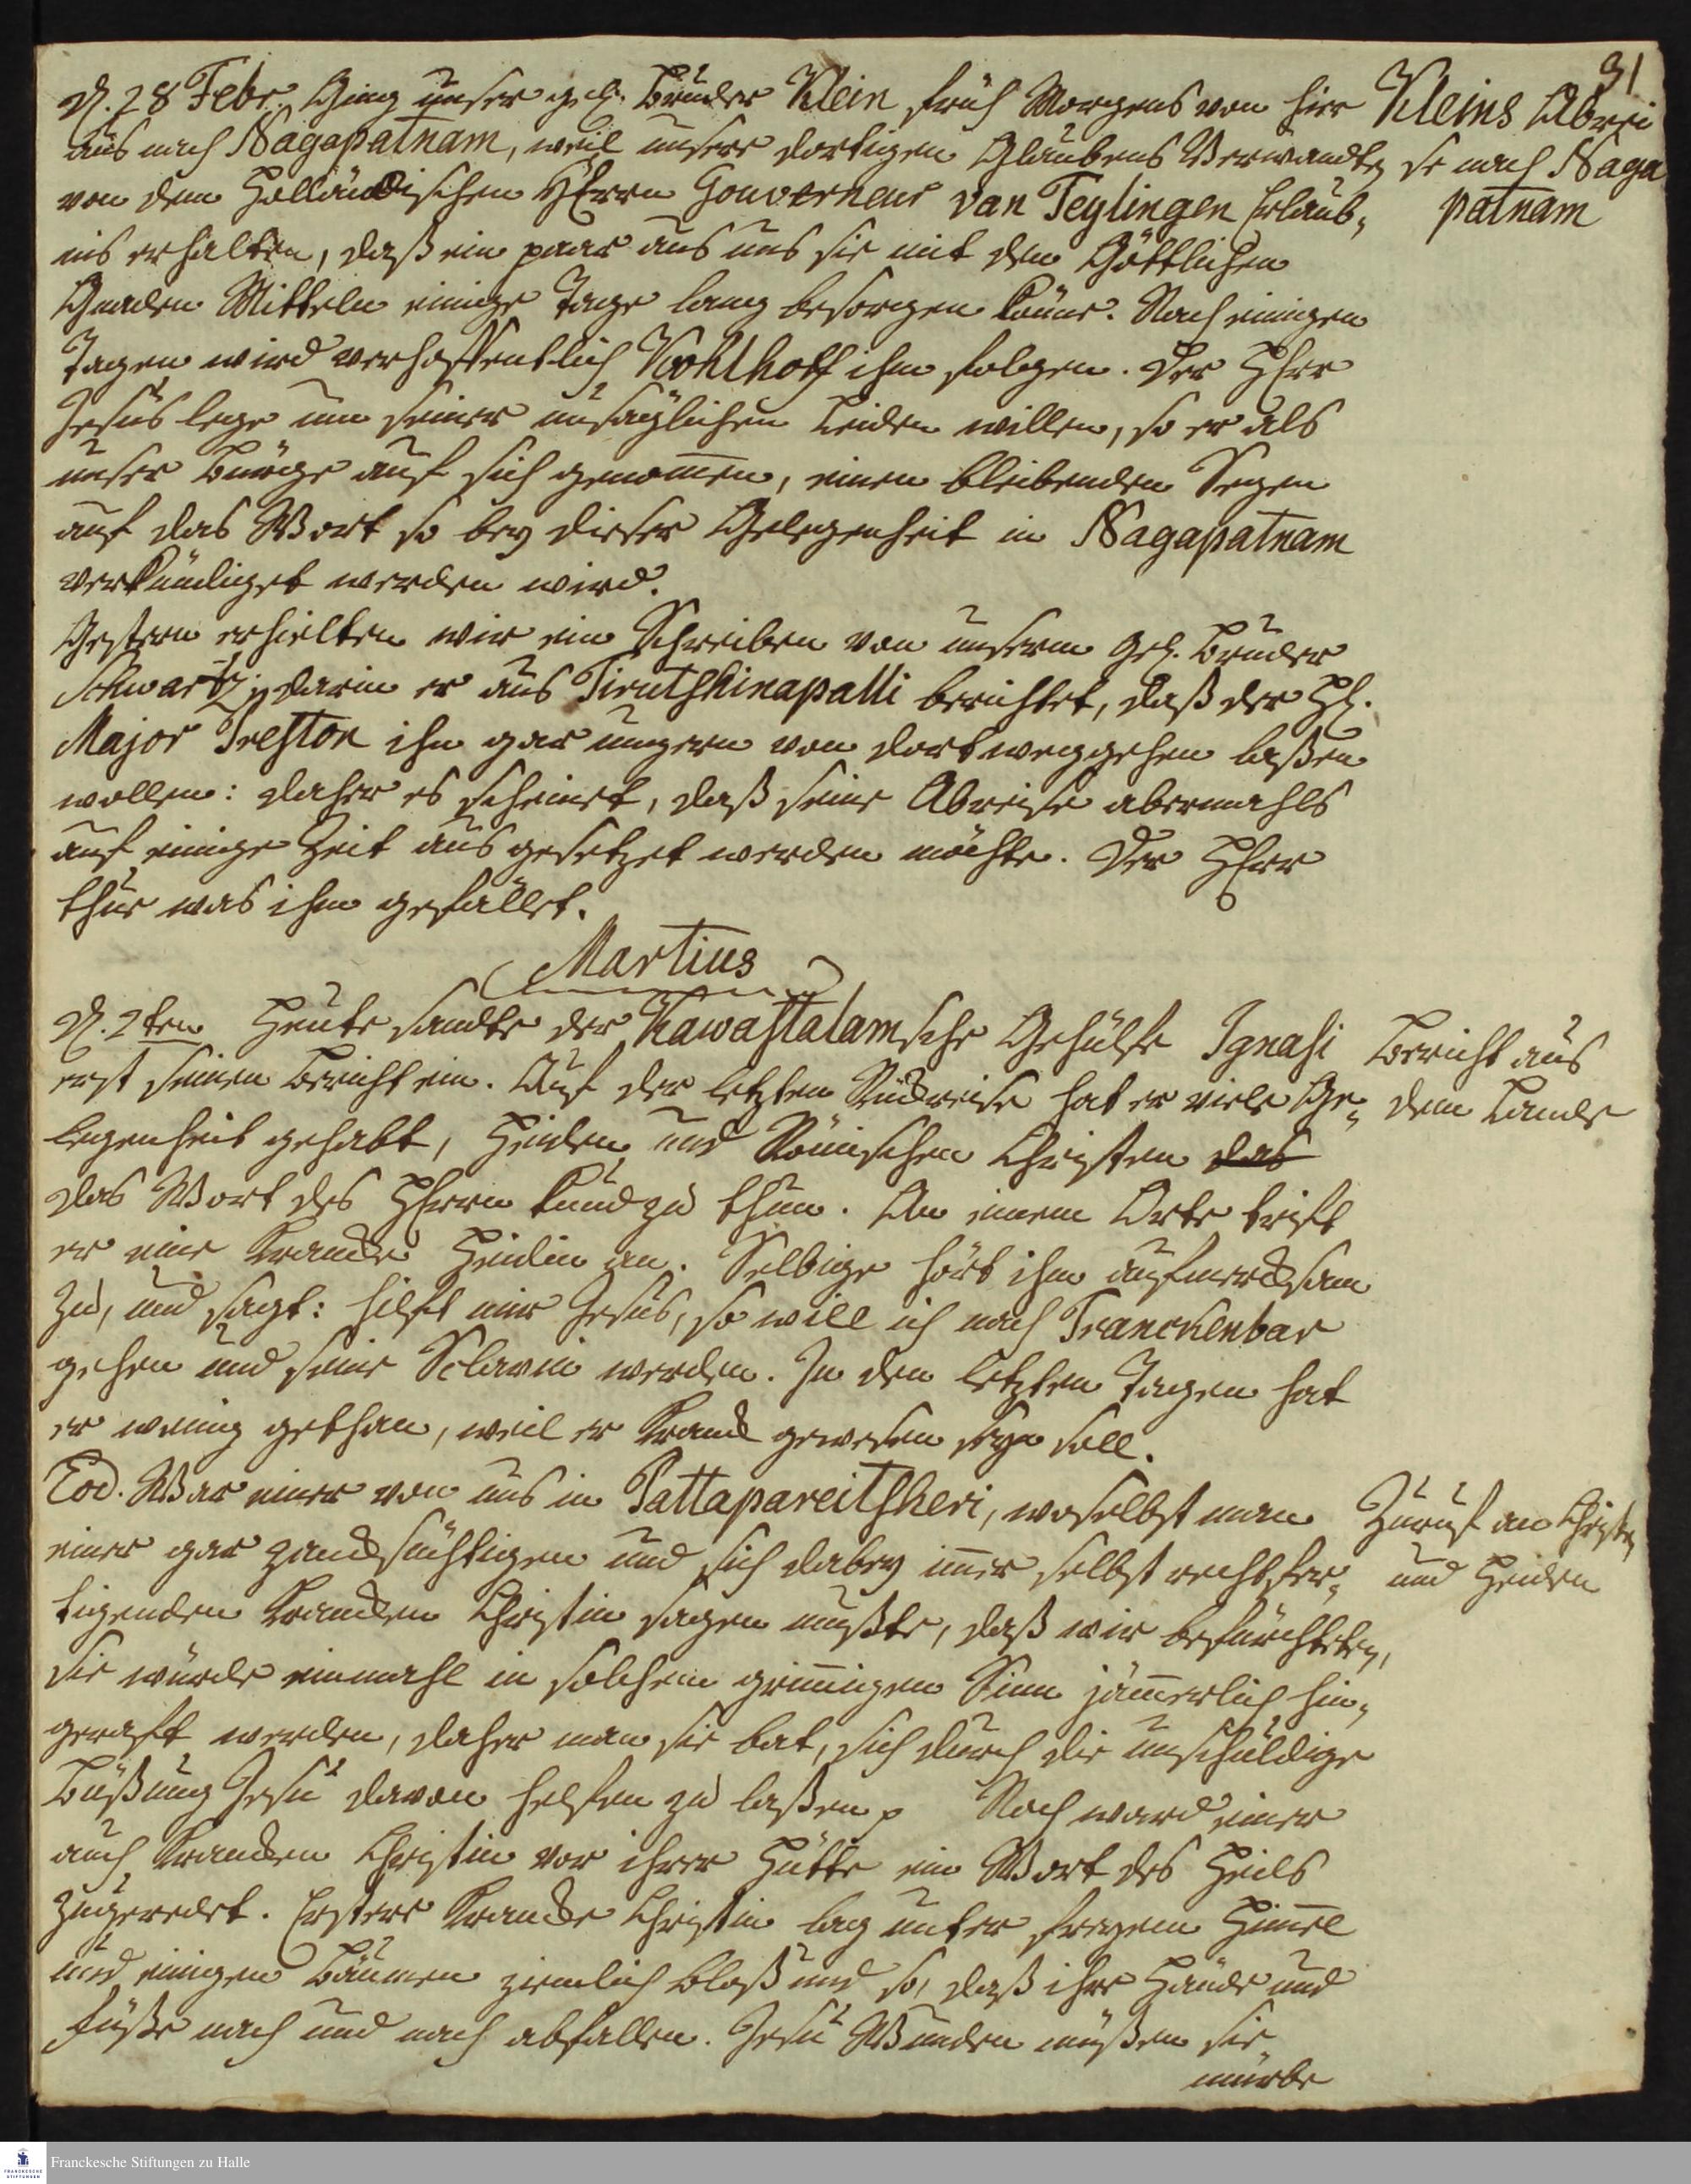 31
D. 28 Febr. Ging unser gel. Bruder Klein früh Morgens von hier
aus nach Nagapatnam, weil unsere dortigen Glaubens Verwandten
von dem Holländischen HErrn Gouverneur van Teylingen Erlaub-
nis erhalten, daß ein paar aus uns sie mit den Göttlichen
Gnaden Mitteln einige Tage lang besorgen könne. Nach einigen
Tagen wird verhoffentlich Kohlhoff ihm folgen. Der HErr
Jesus lege um seiner unsäglichen Leiden willen, so er als
unser Bürge auf sich genom̄en, einen bleibenden Segen
auf das Wort so bey dieser Gelegenheit in Nagapatnam
verkündiget werden wird.
Kleins Abrei
se nach Naga
patnam
Gestern erhielten wir ein Schreiben von unserm gel. Bruder
Schwartz, darin er aus Tirutshinapalli berichtet, daß der H.
Major Preston ihn gar ungern von dort weggehen laßen
wollen: daher es scheinet, daß seine Abreise abermahls
auf einige Zeit ausgesetzet werden möchte. Der HErr
thue was ihm gefällt.
Martius
D. 2ten Heute sandte der Kawastalamsche Gehülfe Ignasi
erst seinen Bericht ein. Auf der letzten Rückreise hat er viele Ge-
legenheit gehabt, Heiden und Römischen Christen das
das Wort des HErrn kund zu thun. An einem Orte trift
er eine krancke Heidin an. Selbige hört ihm aufmercksam
zu, und sagt: hilft mir Jesus, so will ich nach Tranckenbar
gehen und seine Sclavin werden. In den letzten Tagen hat
er wenig gethan, weil er kranck gewesen seyn soll.
Bericht aus
dem Lande
Eod. War einer von uns in Pattapareitsheri, woselbst man
einer gar zancksüchtigen und sich dabey im̄er selbst rechtfer-
tigenden krancken Christin sagen mußte, daß wir befürchteten,
sie würde einmahl in solchem grim̄igen Sinn jäm̄erlich hin-
geraft werden, daher man sie bat, sich durch die unschuldige
Büßung Jesu davon helfen zu laßen p Noch ward einer
auch krancken Christin vor ihrer Hütte ein Wort des Heils
zugeredet. Erstere krancke Christin lag unter freyem Him̄el
und einigen Bäumen ziemlich bloß und so, daß ihre Hände und
Füße nach und nach abfallen. Jesu Wunden müßen sie
mürbe
Zuruf an Christen
und Heiden
Franckesche Stiftungen zu Halle
FRANCKESCHE
STIFTUNGEN